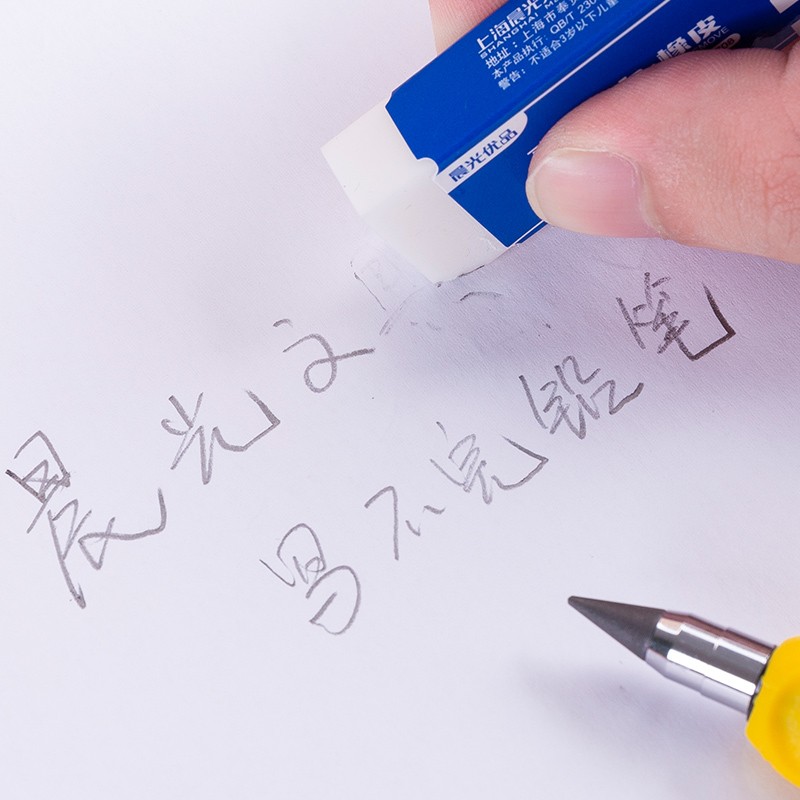 上海晨光
SHANGHAI M
地址：上海市奉
本产品执行：QB/T 230
警告：不适合3岁以下儿童
橡皮
MOVE
晨光优品
晨光文
写不完铅笔